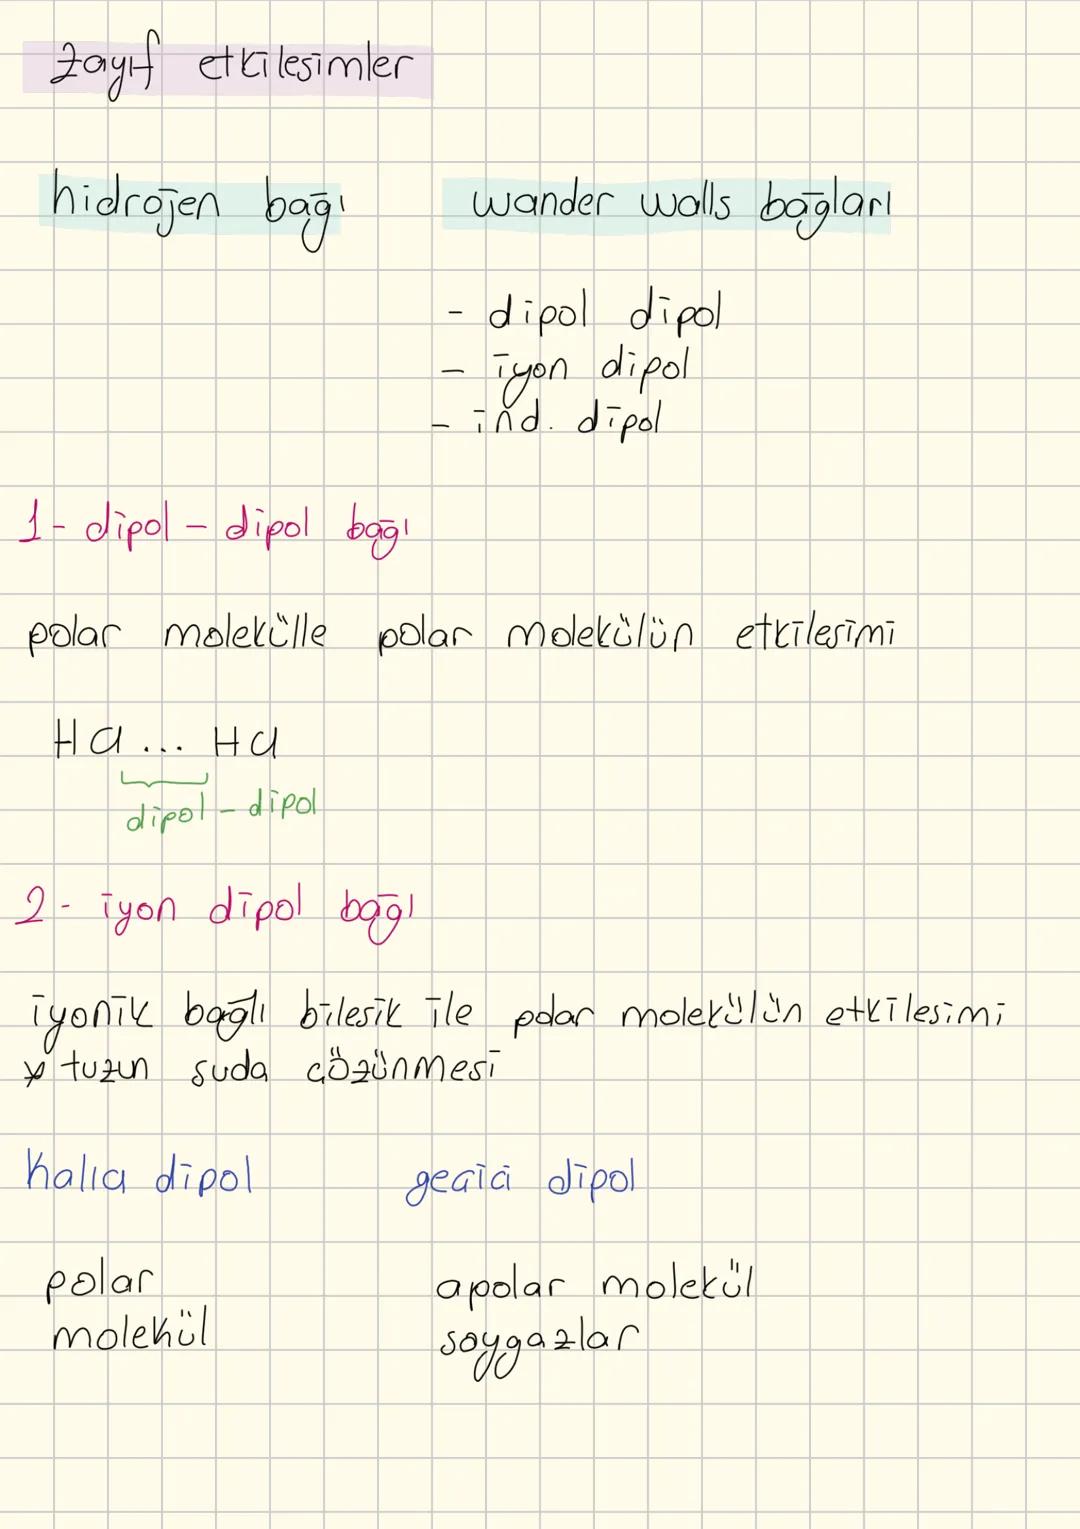 zayıf etkilesimler
hidrojen bağı wander walls bağları
- dipol dipol
- iyon dipol
- ind. dipol
1- dipol - dipol bağı
polar molekülle polar molekülün etkilesimi
HCl ... HCl
dipol - dipol
2- iyon dipol bağı
iyonik bağlı bilesik ile polar molekülün etkilesimi
* tuzun suda çözünmesi
kalıcı dipol gecici dipol
polar apolar molekül
molekül soygazlar